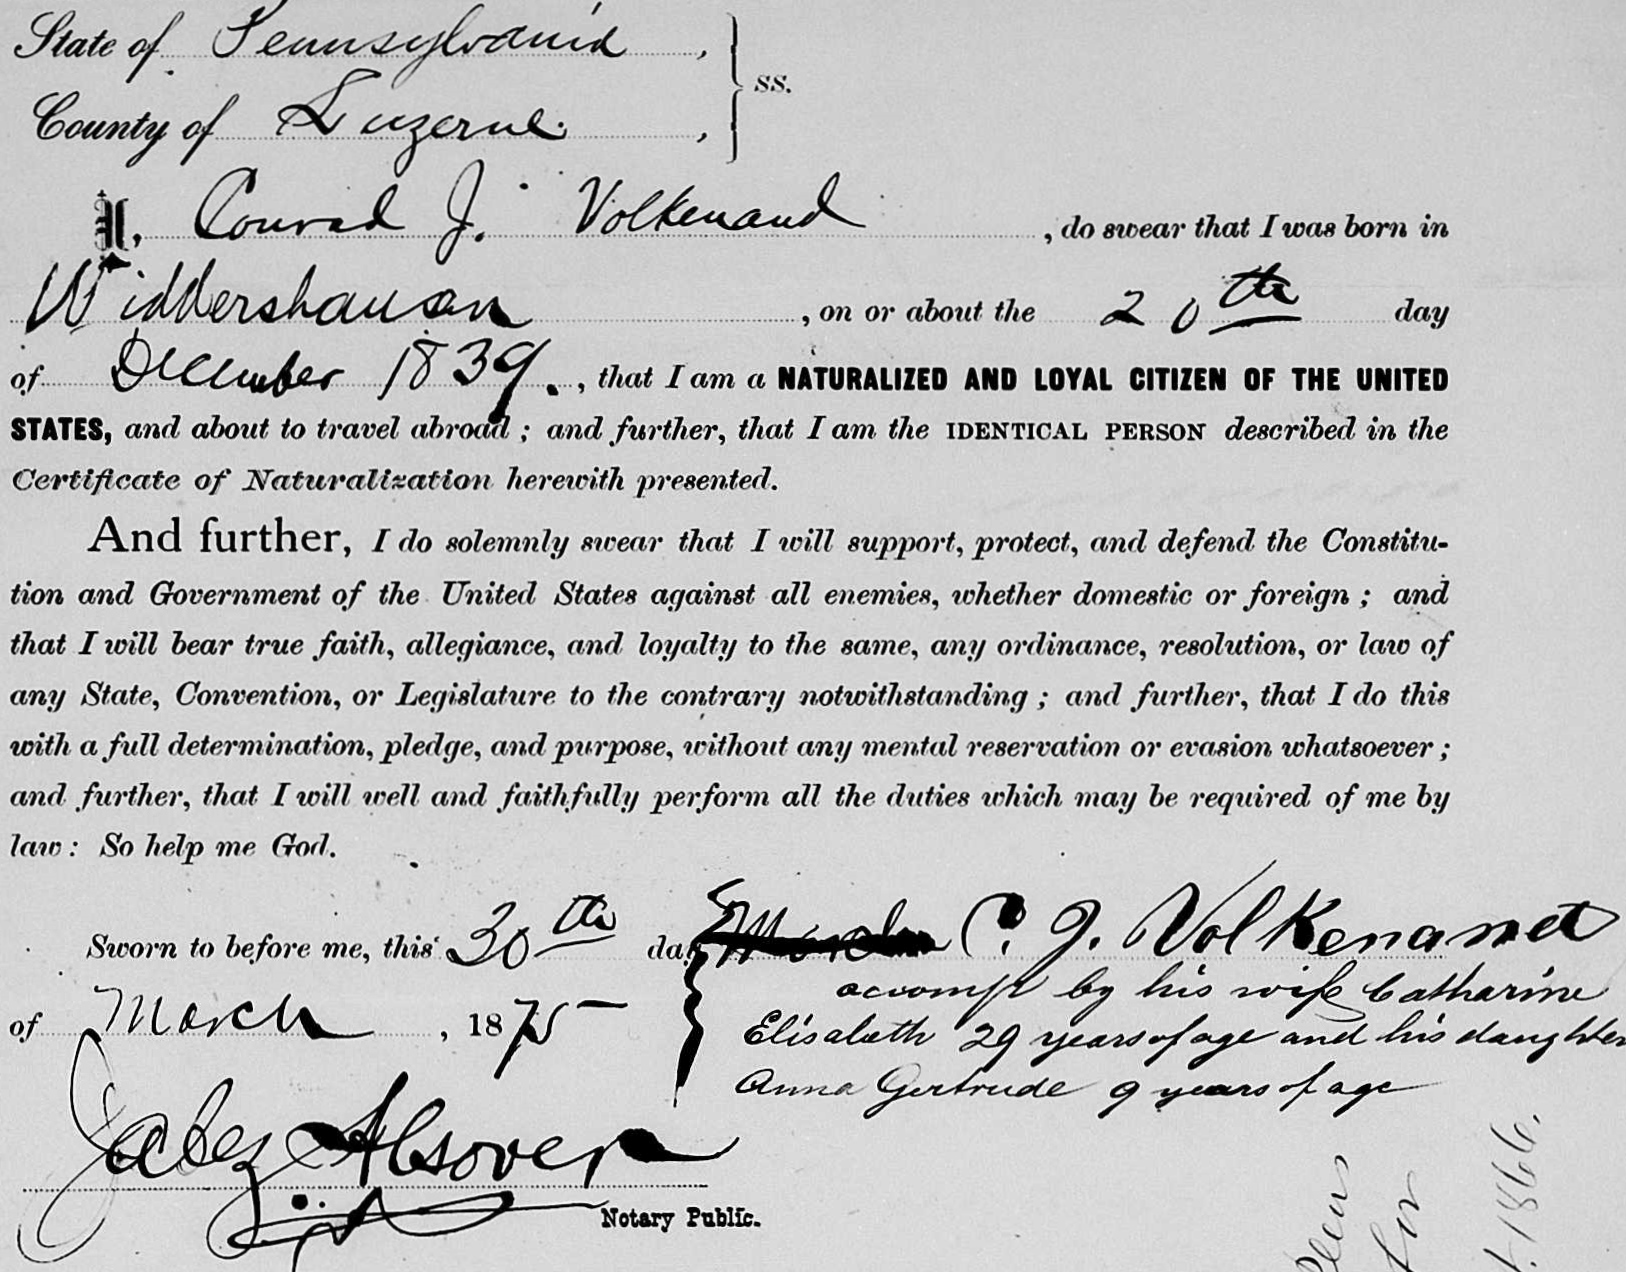 State of Pennsylvania, } ss.
County of Luzerne,
I, Conrad J. Volkenand, do swear that I was born in
Widdershausen, on or about the 20th day
of December 1839., that I am a NATURALIZED AND LOYAL CITIZEN OF THE UNITED
STATES, and about to travel abroad; and further, that I am the IDENTICAL PERSON described in the
Certificate of Naturalization herewith presented.
And further, I do solemnly swear that I will support, protect, and defend the Constitu-
tion and Government of the United States against all enemies, whether domestic or foreign; and
that I will bear true faith, allegiance, and loyalty to the same, any ordinance, resolution, or law of
any State, Convention, or Legislature to the contrary notwithstanding; and further, that I do this
with a full determination, pledge, and purpose, without any mental reservation or evasion whatsoever;
and further, that I will well and faithfully perform all the duties which may be required of me by
law: So help me God.
Sworn to before me, this 30th day
of March, 1875
C. J. Volkenand
accomp by his wife Catharine
Elisabeth 29 years of age and his daughter
Anna Gertrude 9 years of age
Jabez Alsover
Notary Public.
1866.